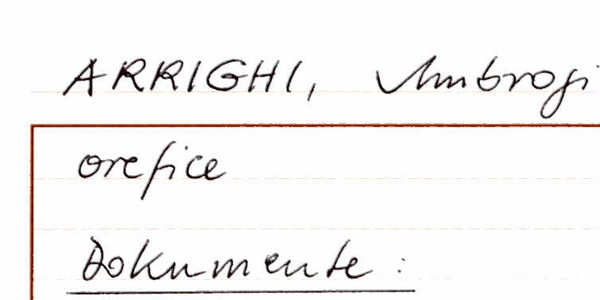 ARRIGHI, Ambrogi
orefice
Dokumente: